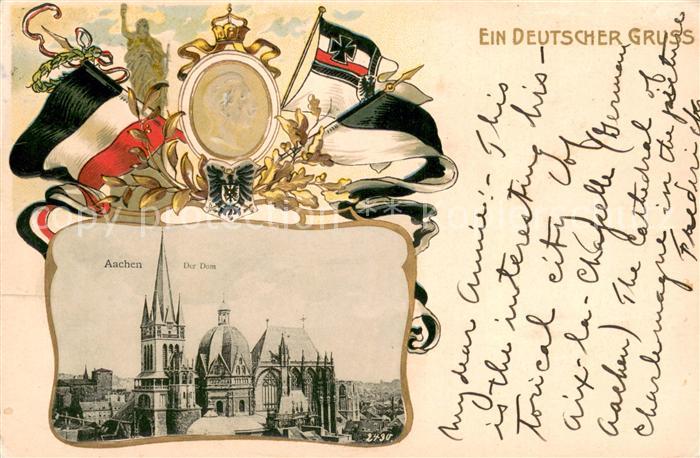 EIN DEUTSCHER GRUSS
Aachen
Der Dom
2490
My dear Annie:- This
is the interesting his-
torical city of
Aix-la-Chapelle (German
Aachen) The Cathedral of
Charlemagne in the picture
Frederick